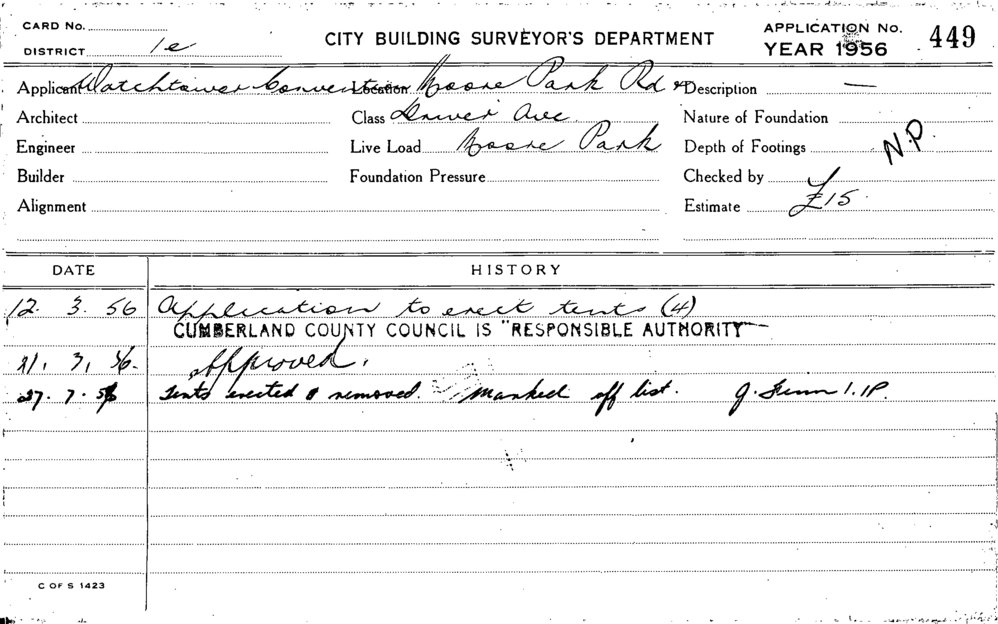 CARD No.
DISTRICT 1e
CITY BUILDING SURVEYOR'S DEPARTMENT
APPLICATION No.
YEAR 1956
449
Applicant Watchtower Convention Location Moore Park Rd & Description —
Architect Class Driver Ave Nature of Foundation
Engineer Live Load Moore Park Depth of Footings N.P.
Builder Foundation Pressure Checked by
Alignment Estimate £15.
DATE HISTORY
12. 3. 56 Application to erect tents (4)
CUMBERLAND COUNTY COUNCIL IS "RESPONSIBLE AUTHORITY"
21. 3. 56. Approved.
27. 7. 56 Tents erected & removed. Marked off list. J.
C OF S 1423